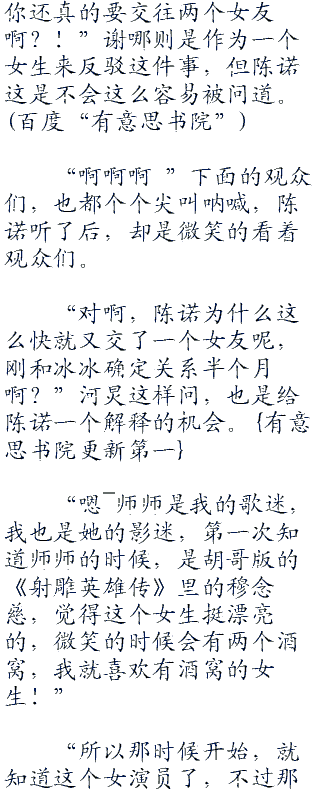 你还真的要交往两个女友
啊？！”谢哪则是作为一个
女生来反驳这件事，但陈诺
这是不会这么容易被问道。
(百度“有意思书院”)
“啊啊啊 ”下面的观众
们，也都个个尖叫呐喊，陈
诺听了后，却是微笑的看着
观众们。
“对啊，陈诺为什么这
么快就又交了一个女友呢，
刚和冰冰确定关系半个月
啊？”河炅这样问，也是给
陈诺一个解释的机会。{有意
思书院更新第一}
“嗯¯师师是我的歌迷，
我也是她的影迷，第一次知
道师师的时候，是胡哥版的
《射雕英雄传》里的穆念
慈，觉得这个女生挺漂亮
的，微笑的时候会有两个酒
窝，我就喜欢有酒窝的女
生！”
“所以那时候开始，就
知道这个女演员了，不过那